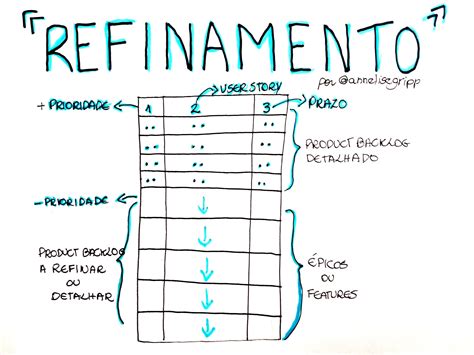 REFINAMENTO
por @annelisegripp
USER STORY
+ PRIORIDADE
1 2 3
PRAZO
PRODUCT BACKLOG
DETALHADO
- PRIORIDADE
PRODUCT BACKLOG
A REFINAR
OU
DETALHAR
ÉPICOS
OU
FEATURES